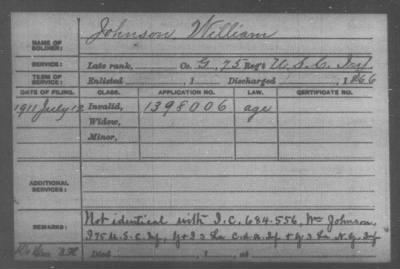 NAME OF SOLDIER: Johnson William
SERVICE: Late rank, Co. G, 75 Reg't U.S.C. Inf.
TERM OF SERVICE: Enlisted , 1 Discharged , 1866
DATE OF FILING. CLASS. APPLICATION NO. LAW. CERTIFICATE NO.
1911 July 12 Invalid, 1398006 age
Widow,
Minor,
ADDITIONAL SERVICES:
REMARKS: Not identical with I.C. 684.556, Wm Johnson,
I 75 U.S.C. Inf, & I 3 La C.d.A. Inf & 3 La N.G. Inf
Died , 1 at